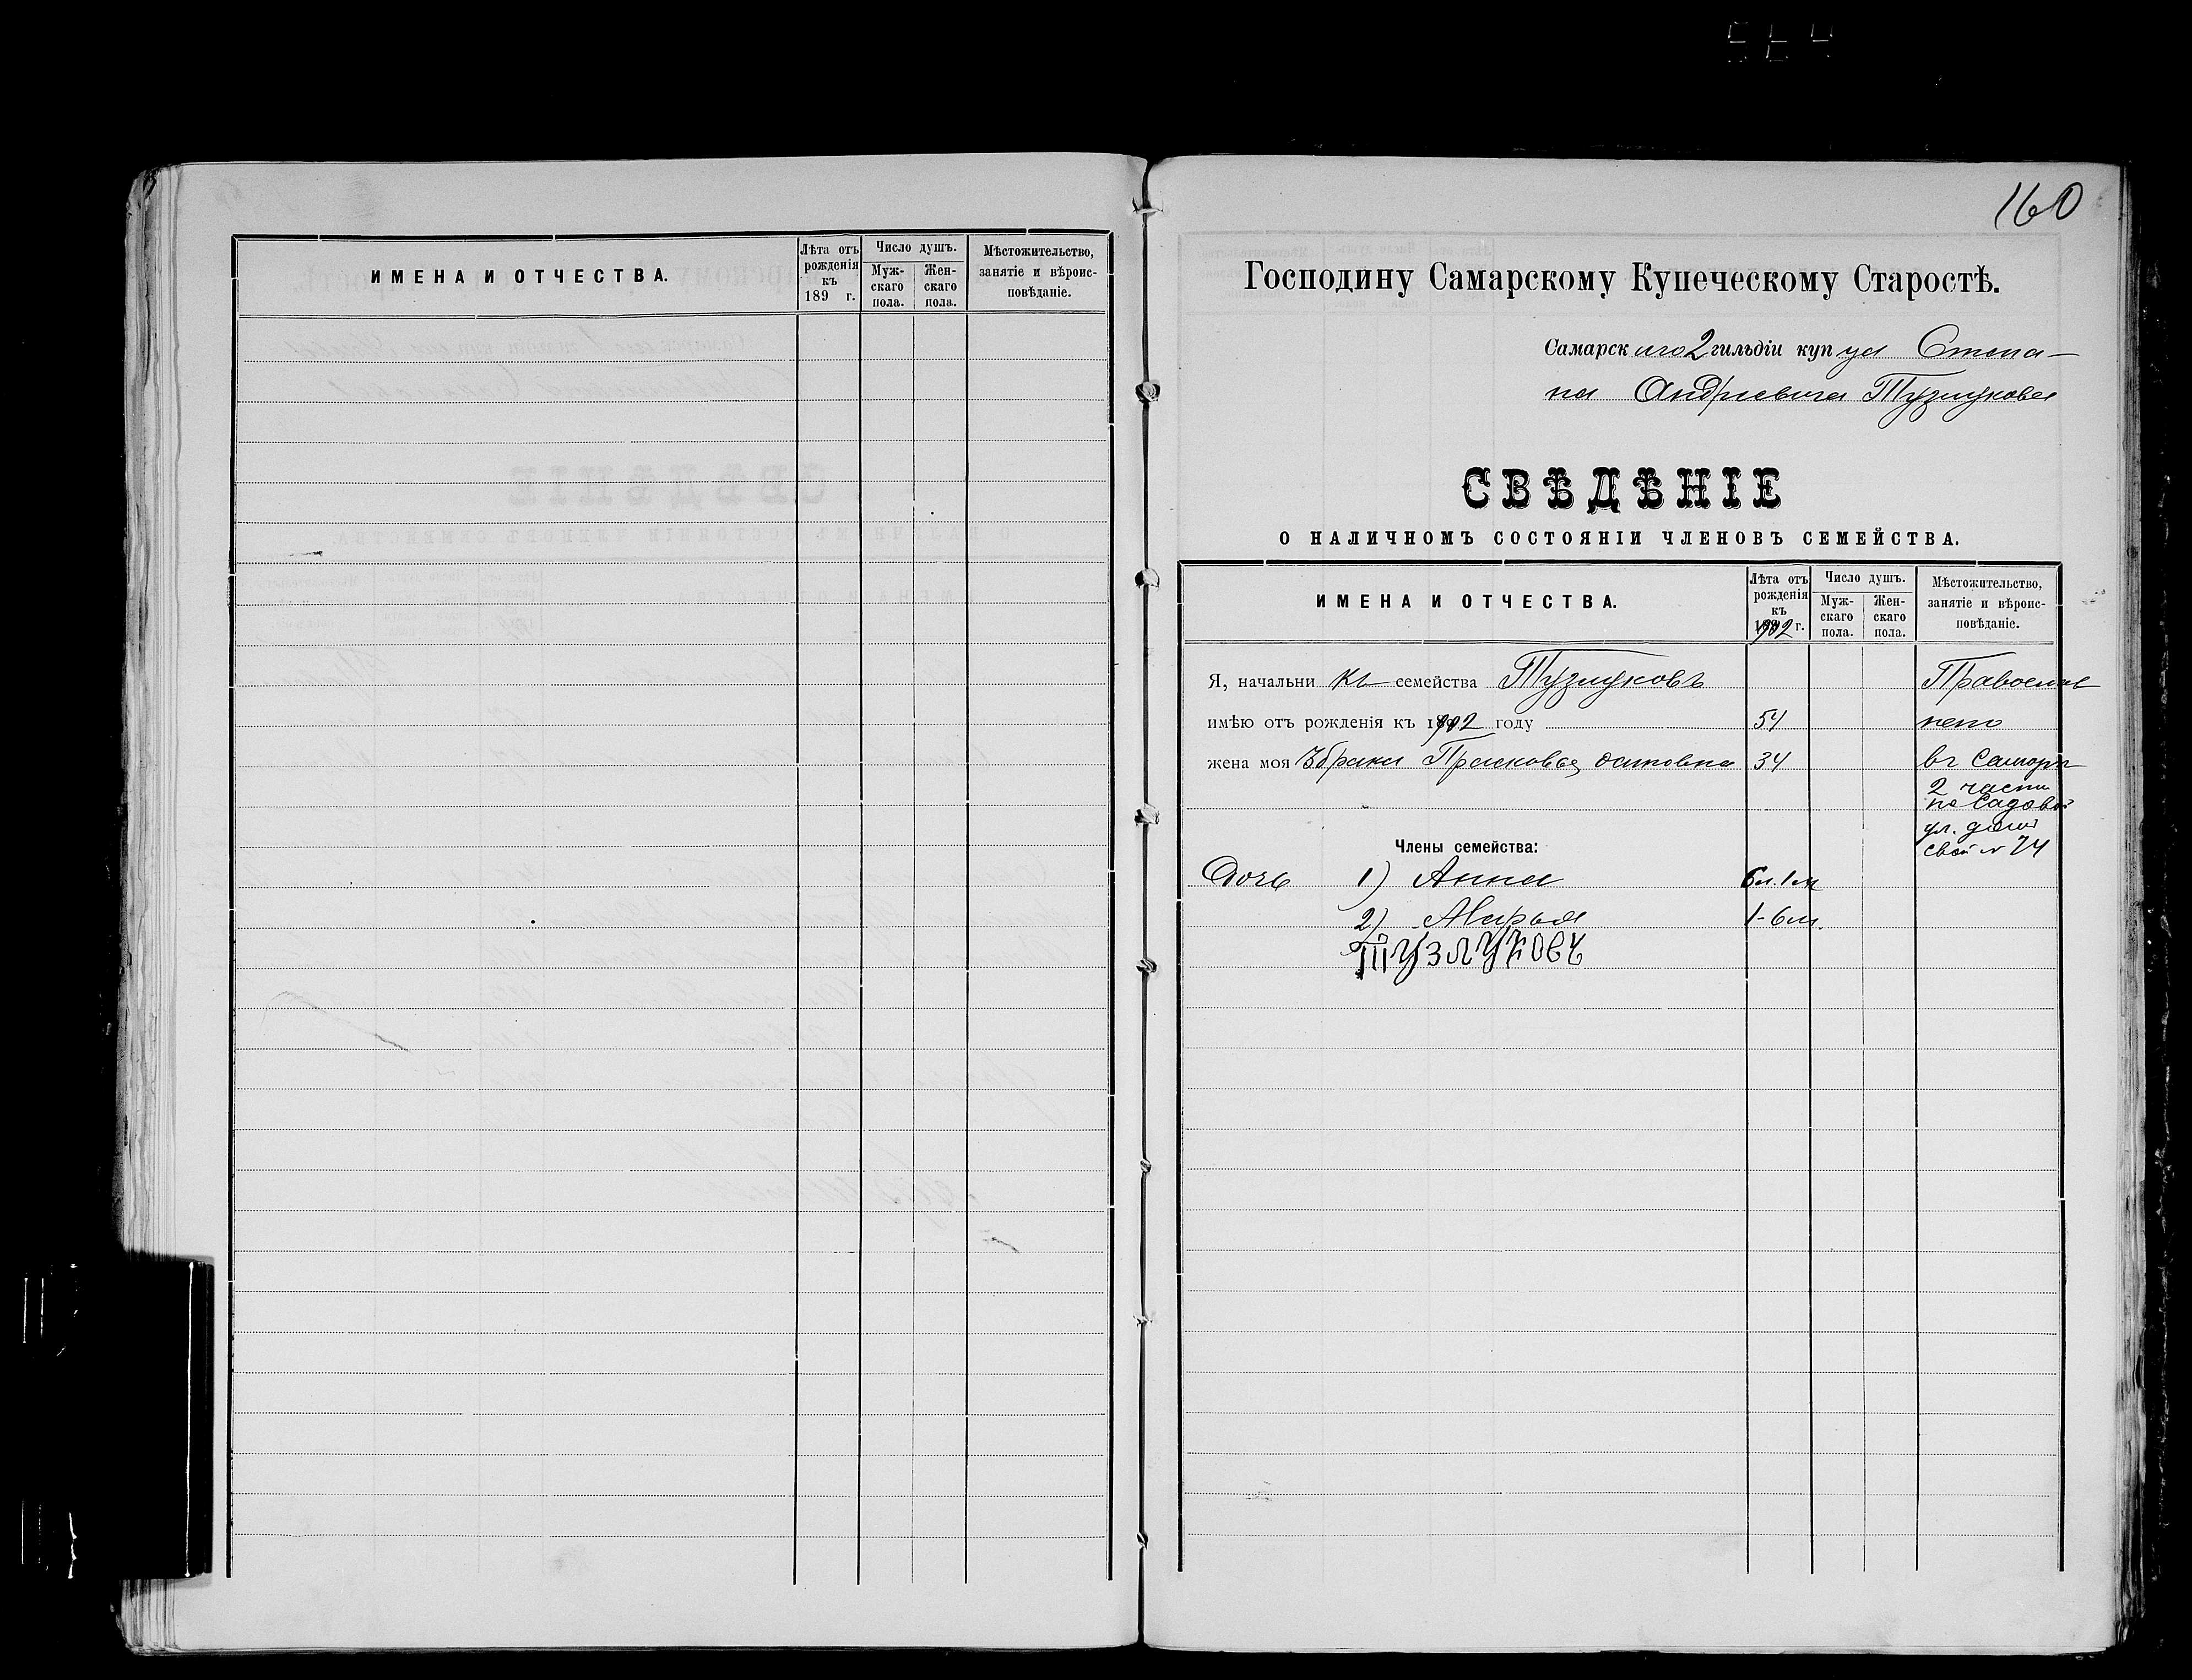 ИМЕНА И ОТЧЕСТВА.
Лѣта отъ рожденія къ 189 г.
Число душъ.
Муж-скаго пола.
Жен-скаго пола.
Мѣстожительство, занятіе и вѣроис-повѣданіе.
160
Господину Самарскому Купеческому Старостѣ.
Самарскаго 2 гильдіи купца Степа-
на Андреевича Тузлукова
СВѢДѢНІЕ
О НАЛИЧНОМЪ СОСТОЯНІИ ЧЛЕНОВЪ СЕМЕЙСТВА.
ИМЕНА И ОТЧЕСТВА.
Лѣта отъ рожденія къ 1902 г.
Число душъ.
Муж-скаго пола.
Жен-скаго пола.
Мѣстожительство, занятіе и вѣроис-повѣданіе.
Я, начальникъ семейства Тузлуковъ Православ
имѣю отъ рожденія къ 1902 году 54 
жена моя 3 брака Прасковья Осиповна 34 въ Самарѣ
2 части
по Садовой
ул. домъ
Члены семейства: свой № 74
Дочь 1) Анна 6 л. 1 м
2) Марья 1-6 м.
Тузлуковъ